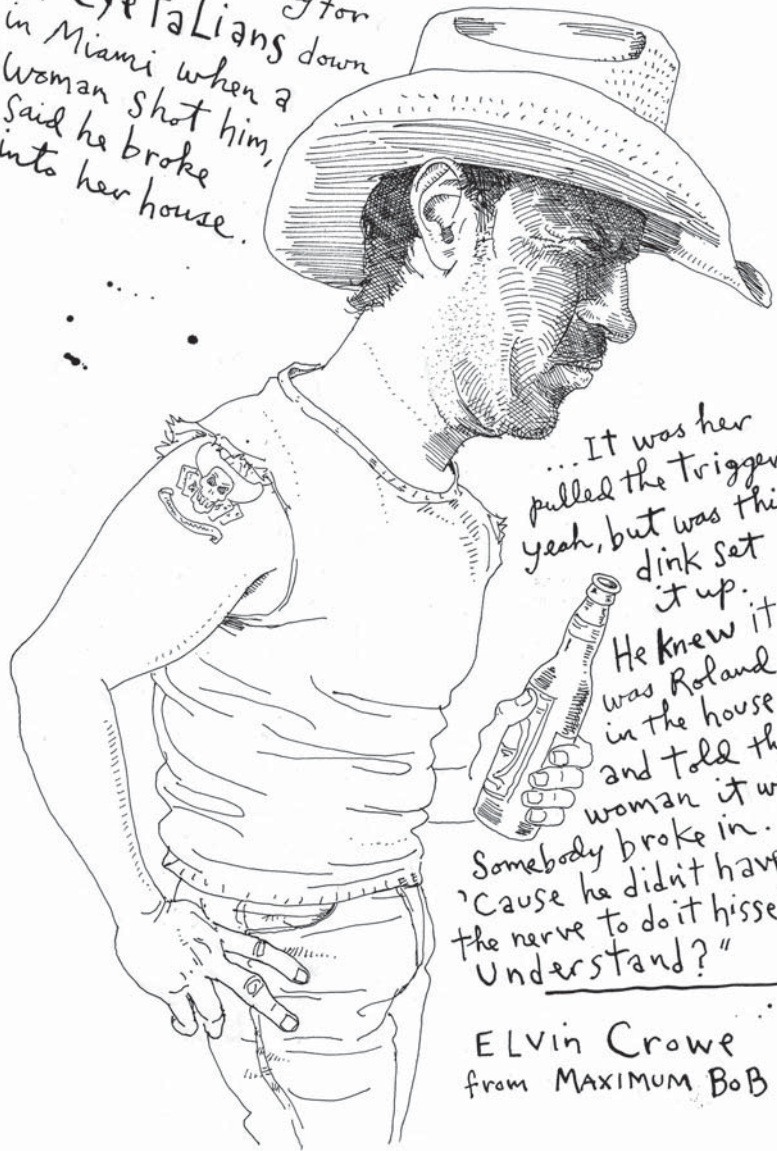 for
EyeTaLians down
in Miami when a
woman shot him,
said he broke
into her house.
...It was her
pulled the trigger
yeah, but was thi
dink set
it up.
He knew it
was Roland
in the house
and told th
woman it w
Somebody broke in.
'Cause he didn't hav
the nerve to do it hisse
Understand?"
ELVin Crowe
from MAXIMUM BoB